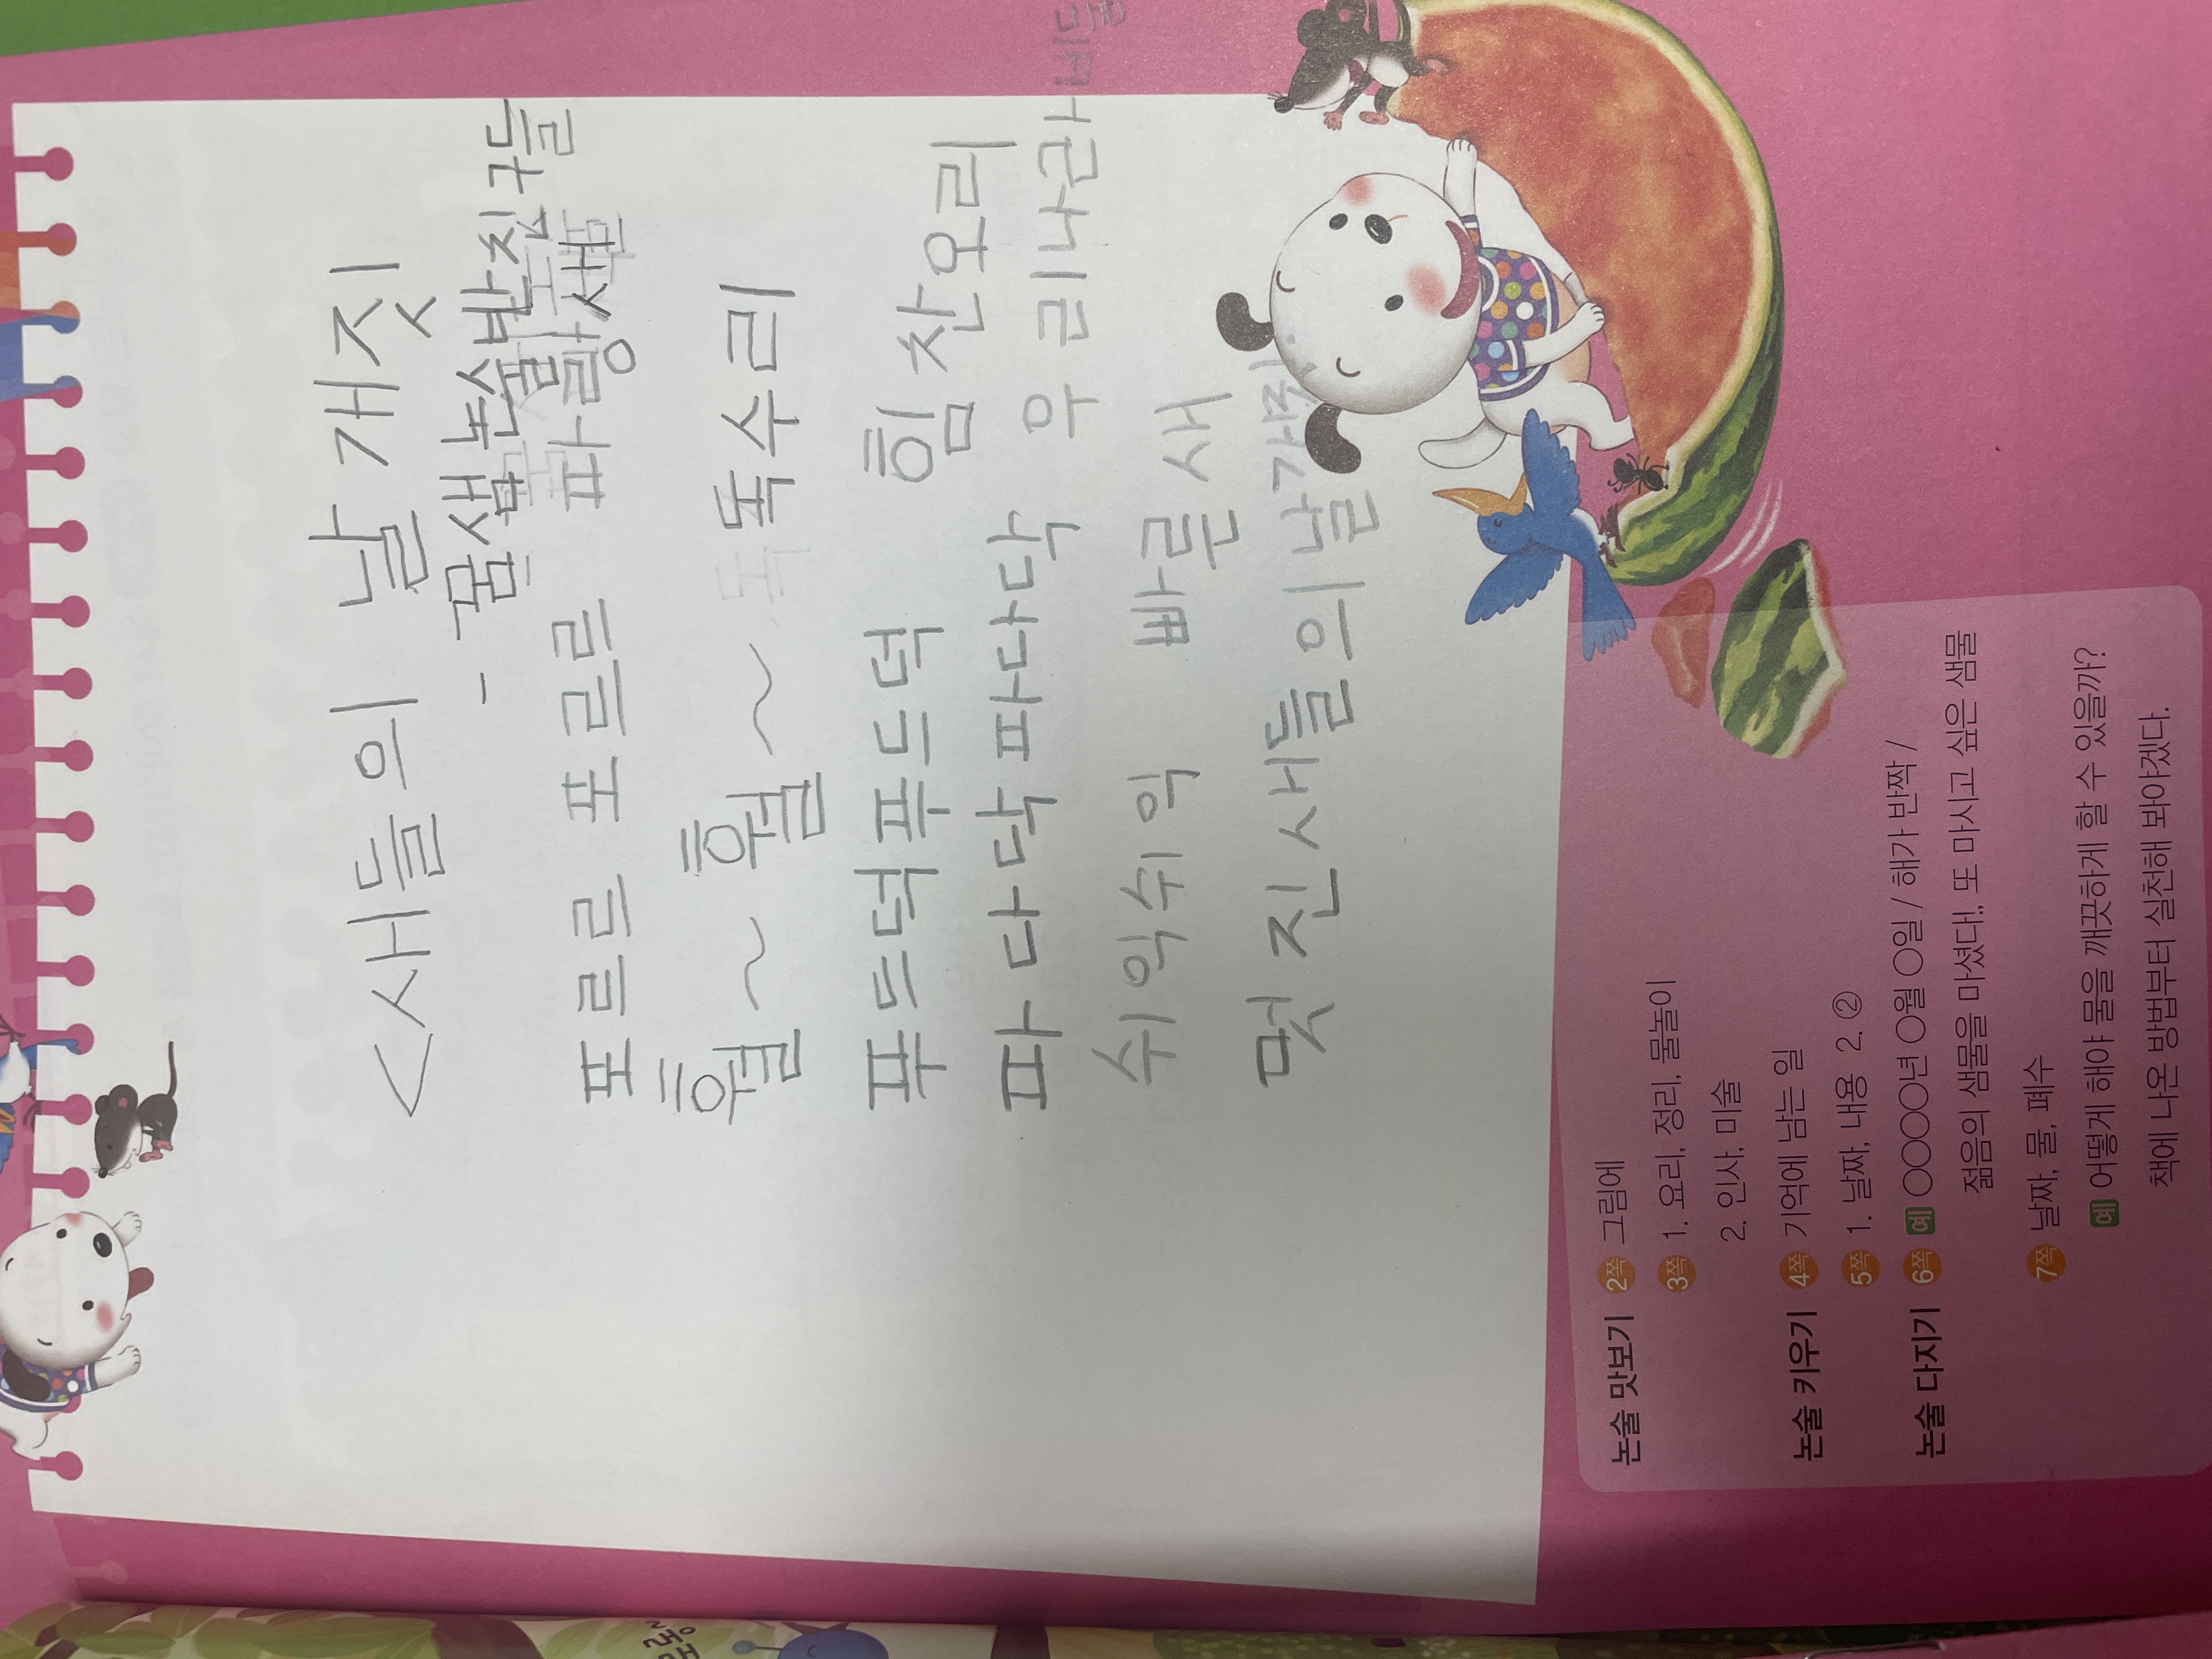 <새들의 날개짓
- 꿈샘논술반친구들
포르르 포르르 파랑새
훨~ 훨~ 독수리
푸드덕푸드덕 힘찬오리
파다닥파다닥 우리나라
쉬익쉬익 빠른새
멋진새들의날개짓
논술 맛보기 2쪽 그림에
3쪽 1. 요리, 정리, 물놀이
2. 인사, 미술
논술 키우기 4쪽 기억에 남는 일
5쪽 1. 날짜, 내용 2. ②
논술 다지기 6쪽 예 ○○○○년 ○월 ○일 / 해가 반짝 /
젊음의 샘물을 마셨다!, 또 마시고 싶은 샘물
7쪽 날짜, 물, 폐수
예 어떻게 해야 물을 깨끗하게 할 수 있을까?
책에 나온 방법부터 실천해 봐야겠다.